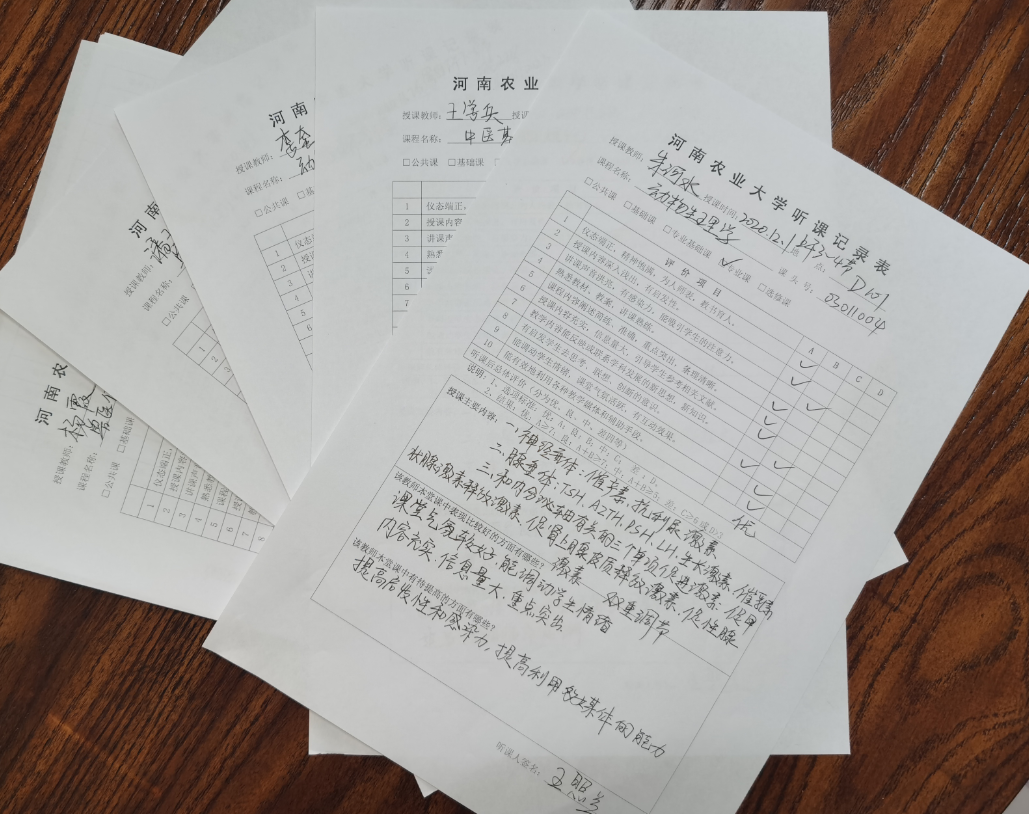 河南农业大学听课记录表
授课教师：朱河水 授课时间：2020.12.1 上午3~4节 地点：D101
课程名称：动物生理学 课头号：03011004
□公共课 □基础课 □专业基础课 ✓专业课 □选修课
评价项目 A B C D
1 仪态端正，精神饱满，为人师表，教书育人。
2 授课内容深入浅出，有启发性。
3 讲课声音洪亮，有感染力，能吸引学生的注意力。
4 熟悉教材、教案，讲课熟练。
5 课程内容阐述简练、准确，重点突出，条理清晰。
6 授课内容充实，信息量大，引导学生参考相关文献。
7 教学内容能反映或联系学科发展的新思想、新知识。
8 有启发学生去思考、联想、创新的意识。
9 能调动学生情绪，课堂气氛活跃，有互动效果。
10 能有效地利用各种教学媒体和辅助手段。
听课后总体评价（分为优、良、中、差四等） 优
说明：1、选项标准：优：A，良：B，中：C，差：D。
授课主要内容：一、神经垂体：催产素、抗利尿激素
二、腺垂体：TSH、AZTH、FSH、LH、生长激素、催乳素
三、和内分泌轴有关的三个单项促进激素：促甲
状腺激素释放激素、促肾上腺皮质释放激素、促性腺
激素 双重调节
该教师本堂课中表现比较好的方面有哪些？
课堂气氛较好，能调动学生情绪
内容充实、信息量大、重点突出
该教师本堂课中有待提高的方面有哪些？
提高启发性和感染力，提高利用多媒体的能力
听课人签名：
河南农业
授课教师：王学兵 授课
课程名称：中医基
□公共课 □基础课
1 仪态端正，
2 授课内容
3 讲课声
4 熟悉
5
6
7
河南
授课教师：
课程名称：动
□公共课 □基
1 仪态
2 授课
3 讲
4
5
6
7
河南
授课教师：
课程名称：
□公共课
1
2
3
4
河南农
授课教师：杨霞
课程名称：兽医
□公共课 □基础课
1 仪态端正
2 授课内容
3 讲课声
4 熟悉
5
6
7
8